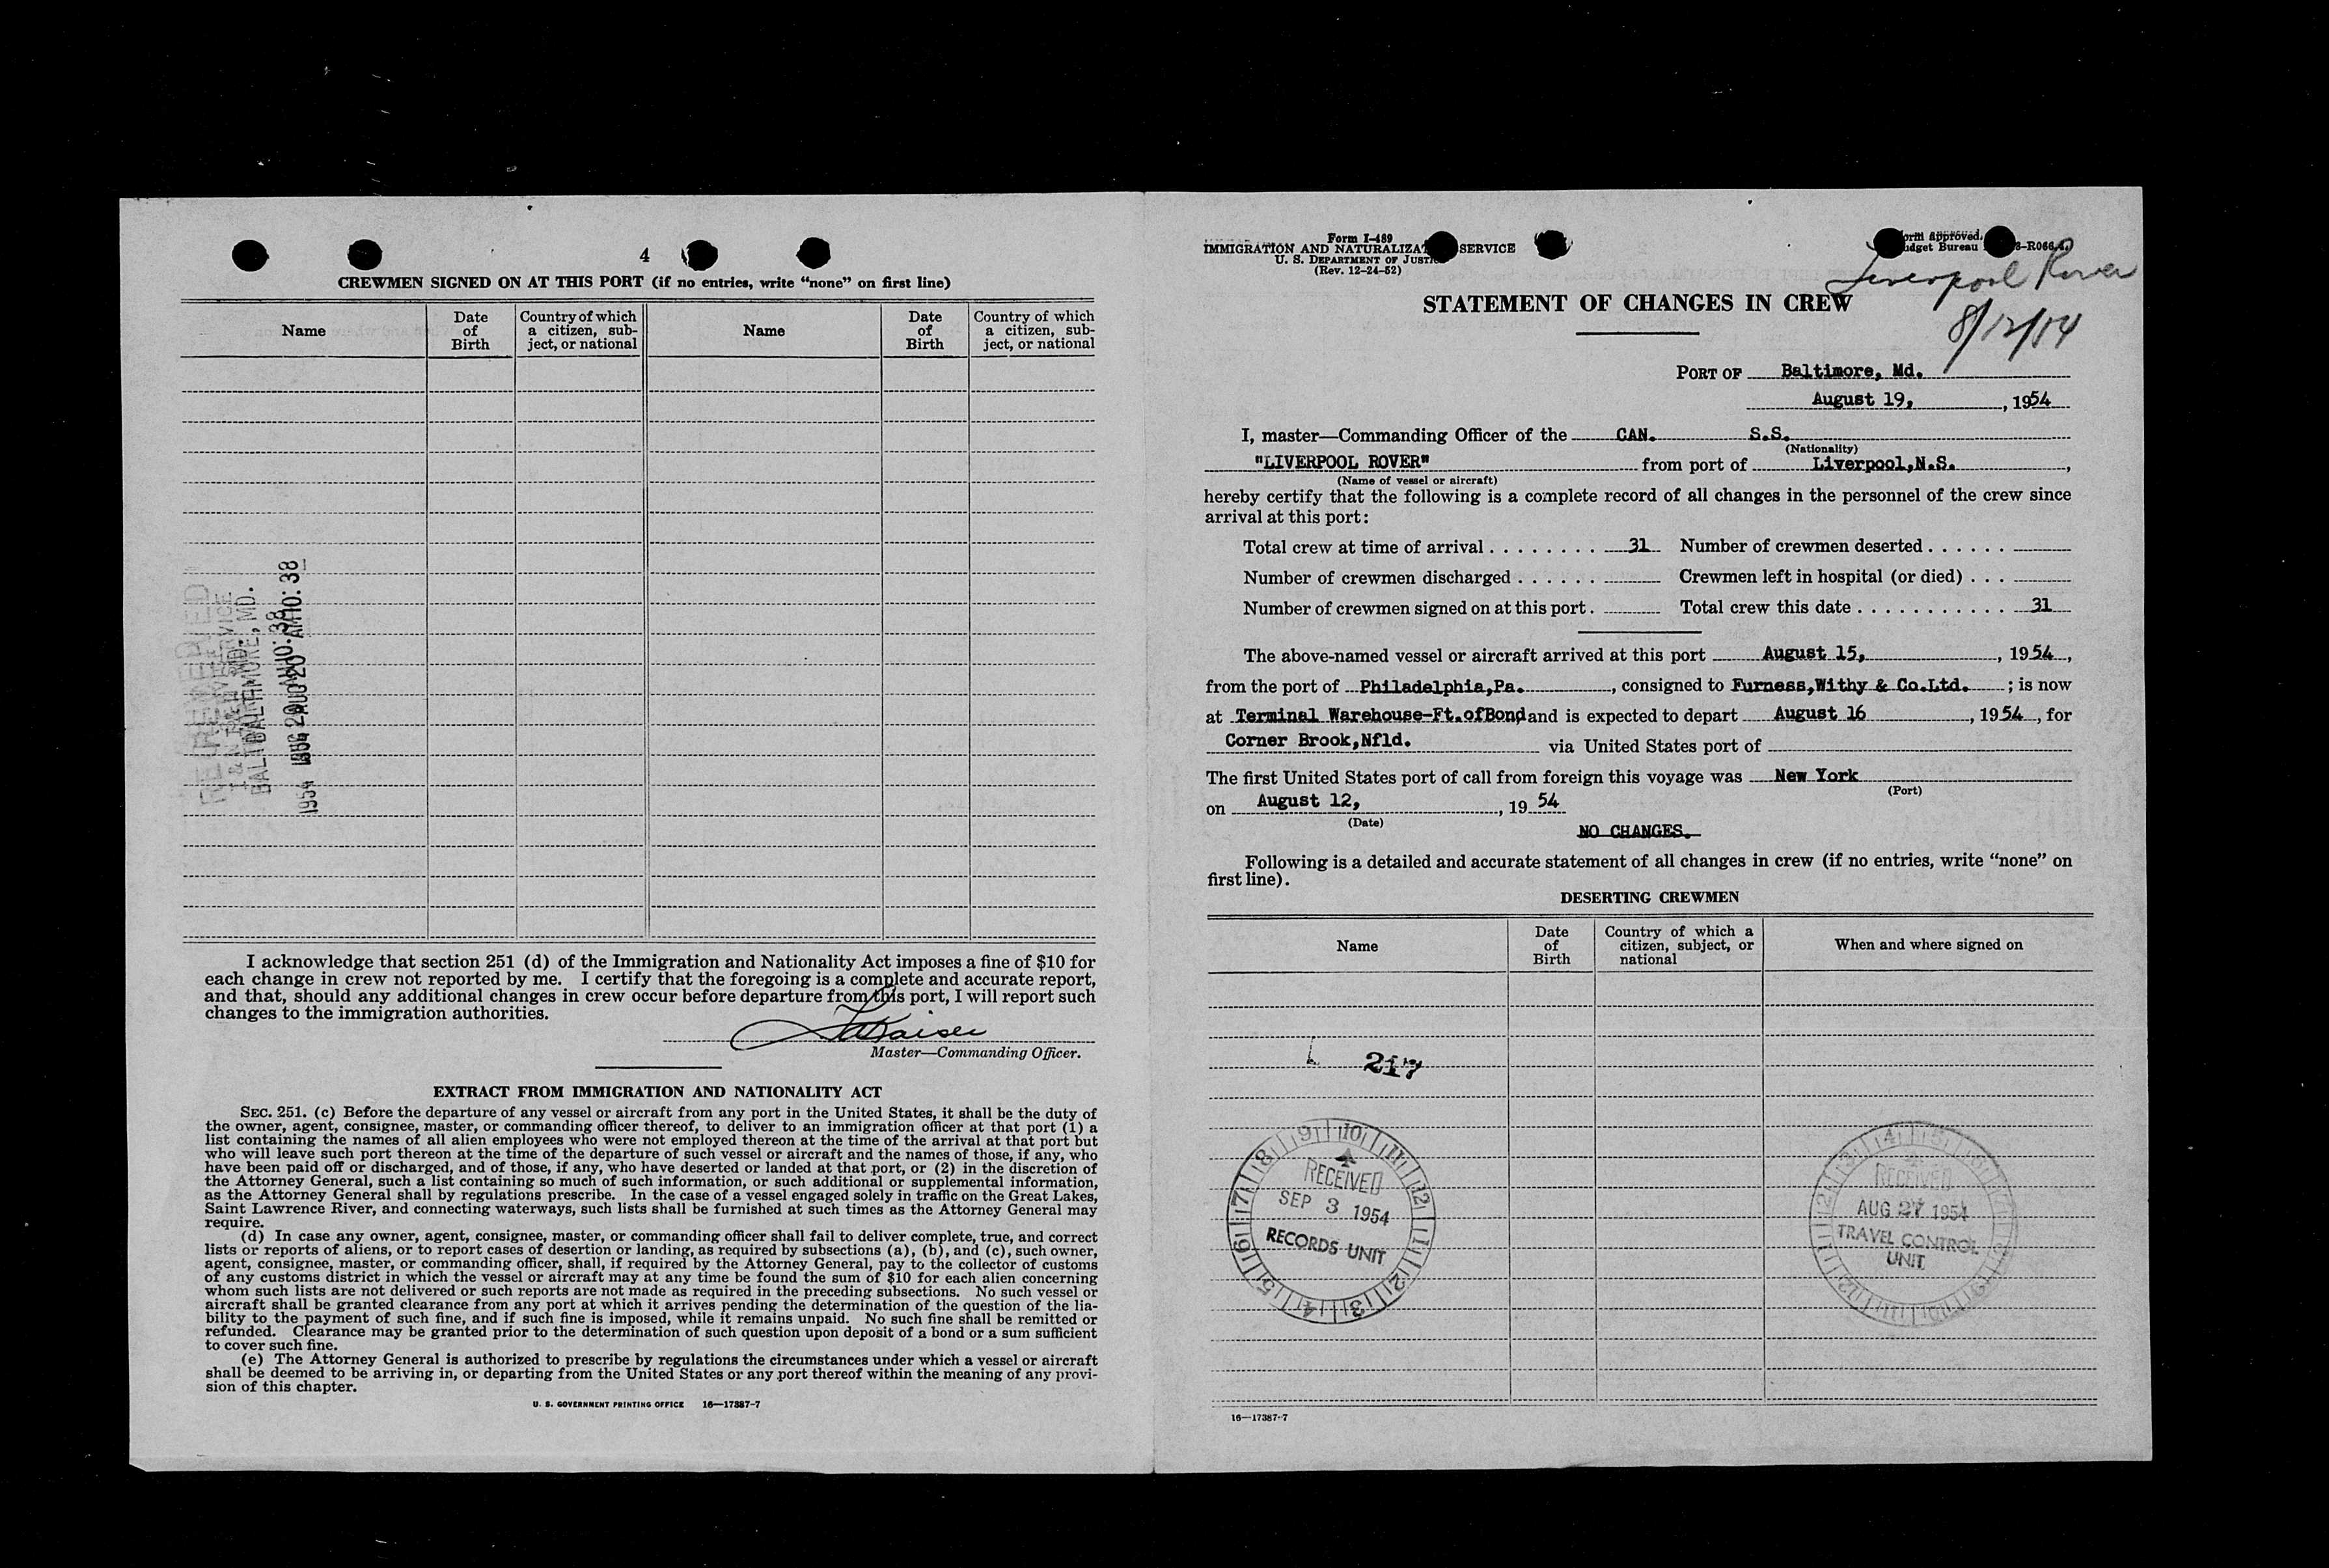 4
CREWMEN SIGNED ON AT THIS PORT (if no entries, write “none” on first line)
Name
Date of Birth
Country of which a citizen, sub-ject, or national
Name
Date of Birth
Country of which a citizen, sub-ject, or national
BALTIMORE, MD.
1954 AUG 20 AM 10: 38
I acknowledge that section 251 (d) of the Immigration and Nationality Act imposes a fine of $10 for
each change in crew not reported by me. I certify that the foregoing is a complete and accurate report,
and that, should any additional changes in crew occur before departure from this port, I will report such
changes to the immigration authorities.
Master—Commanding Officer.
EXTRACT FROM IMMIGRATION AND NATIONALITY ACT
SEC. 251. (c) Before the departure of any vessel or aircraft from any port in the United States, it shall be the duty of
the owner, agent, consignee, master, or commanding officer thereof, to deliver to an immigration officer at that port (1) a
list containing the names of all alien employees who were not employed thereon at the time of the arrival at that port but
who will leave such port thereon at the time of the departure of such vessel or aircraft and the names of those, if any, who
have been paid off or discharged, and of those, if any, who have deserted or landed at that port, or (2) in the discretion of
the Attorney General, such a list containing so much of such information, or such additional or supplemental information,
as the Attorney General shall by regulations prescribe. In the case of a vessel engaged solely in traffic on the Great Lakes,
Saint Lawrence River, and connecting waterways, such lists shall be furnished at such times as the Attorney General may
require.
(d) In case any owner, agent, consignee, master, or commanding officer shall fail to deliver complete, true, and correct
lists or reports of aliens, or to report cases of desertion or landing, as required by subsections (a), (b), and (c), such owner,
agent, consignee, master, or commanding officer, shall, if required by the Attorney General, pay to the collector of customs
of any customs district in which the vessel or aircraft may at any time be found the sum of $10 for each alien concerning
whom such lists are not delivered or such reports are not made as required in the preceding subsections. No such vessel or
aircraft shall be granted clearance from any port at which it arrives pending the determination of the question of the lia-
bility to the payment of such fine, and if such fine is imposed, while it remains unpaid. No such fine shall be remitted or
refunded. Clearance may be granted prior to the determination of such question upon deposit of a bond or a sum sufficient
to cover such fine.
(e) The Attorney General is authorized to prescribe by regulations the circumstances under which a vessel or aircraft
shall be deemed to be arriving in, or departing from the United States or any port thereof within the meaning of any provi-
sion of this chapter.
U. S. GOVERNMENT PRINTING OFFICE 16—17387-7
Form I-489
IMMIGRATION AND NATURALIZAT SERVICE
U. S. DEPARTMENT OF JUSTIC
(Rev. 12-24-52)
orm approved.
udget Bureau 3-R066.4.
Liverpool Rover
8/12/54
STATEMENT OF CHANGES IN CREW
PORT OF Baltimore, Md.
August 19, , 1954
I, master—Commanding Officer of the CAN. S.S.
(Nationality)
"LIVERPOOL ROVER" from port of Liverpool,N.S. ,
(Name of vessel or aircraft)
hereby certify that the following is a complete record of all changes in the personnel of the crew since
arrival at this port:
Total crew at time of arrival . . . . . . . . 31 Number of crewmen deserted . . . . . .
Number of crewmen discharged . . . . . . Crewmen left in hospital (or died) . . .
Number of crewmen signed on at this port. Total crew this date . . . . . . . . . . . 31
The above-named vessel or aircraft arrived at this port August 15, , 1954 ,
from the port of Philadelphia,Pa. , consigned to Furness,Withy & Co.Ltd. ; is now
at Terminal Warehouse-Ft.ofBond and is expected to depart August 16 , 1954 , for
Corner Brook,Nfld. via United States port of
The first United States port of call from foreign this voyage was New York
(Port)
on August 12, , 19 54
(Date)
NO CHANGES.
Following is a detailed and accurate statement of all changes in crew (if no entries, write “none” on
first line).
DESERTING CREWMEN
Name
Date of Birth
Country of which a citizen, subject, or national
When and where signed on
217
9 10 11 12 1 2 3 4 5 6 7 8
RECEIVED
SEP 3 1954
RECORDS UNIT
RECEIVED
AUG 27 1954
TRAVEL CONTROL
UNIT
16—17387-7